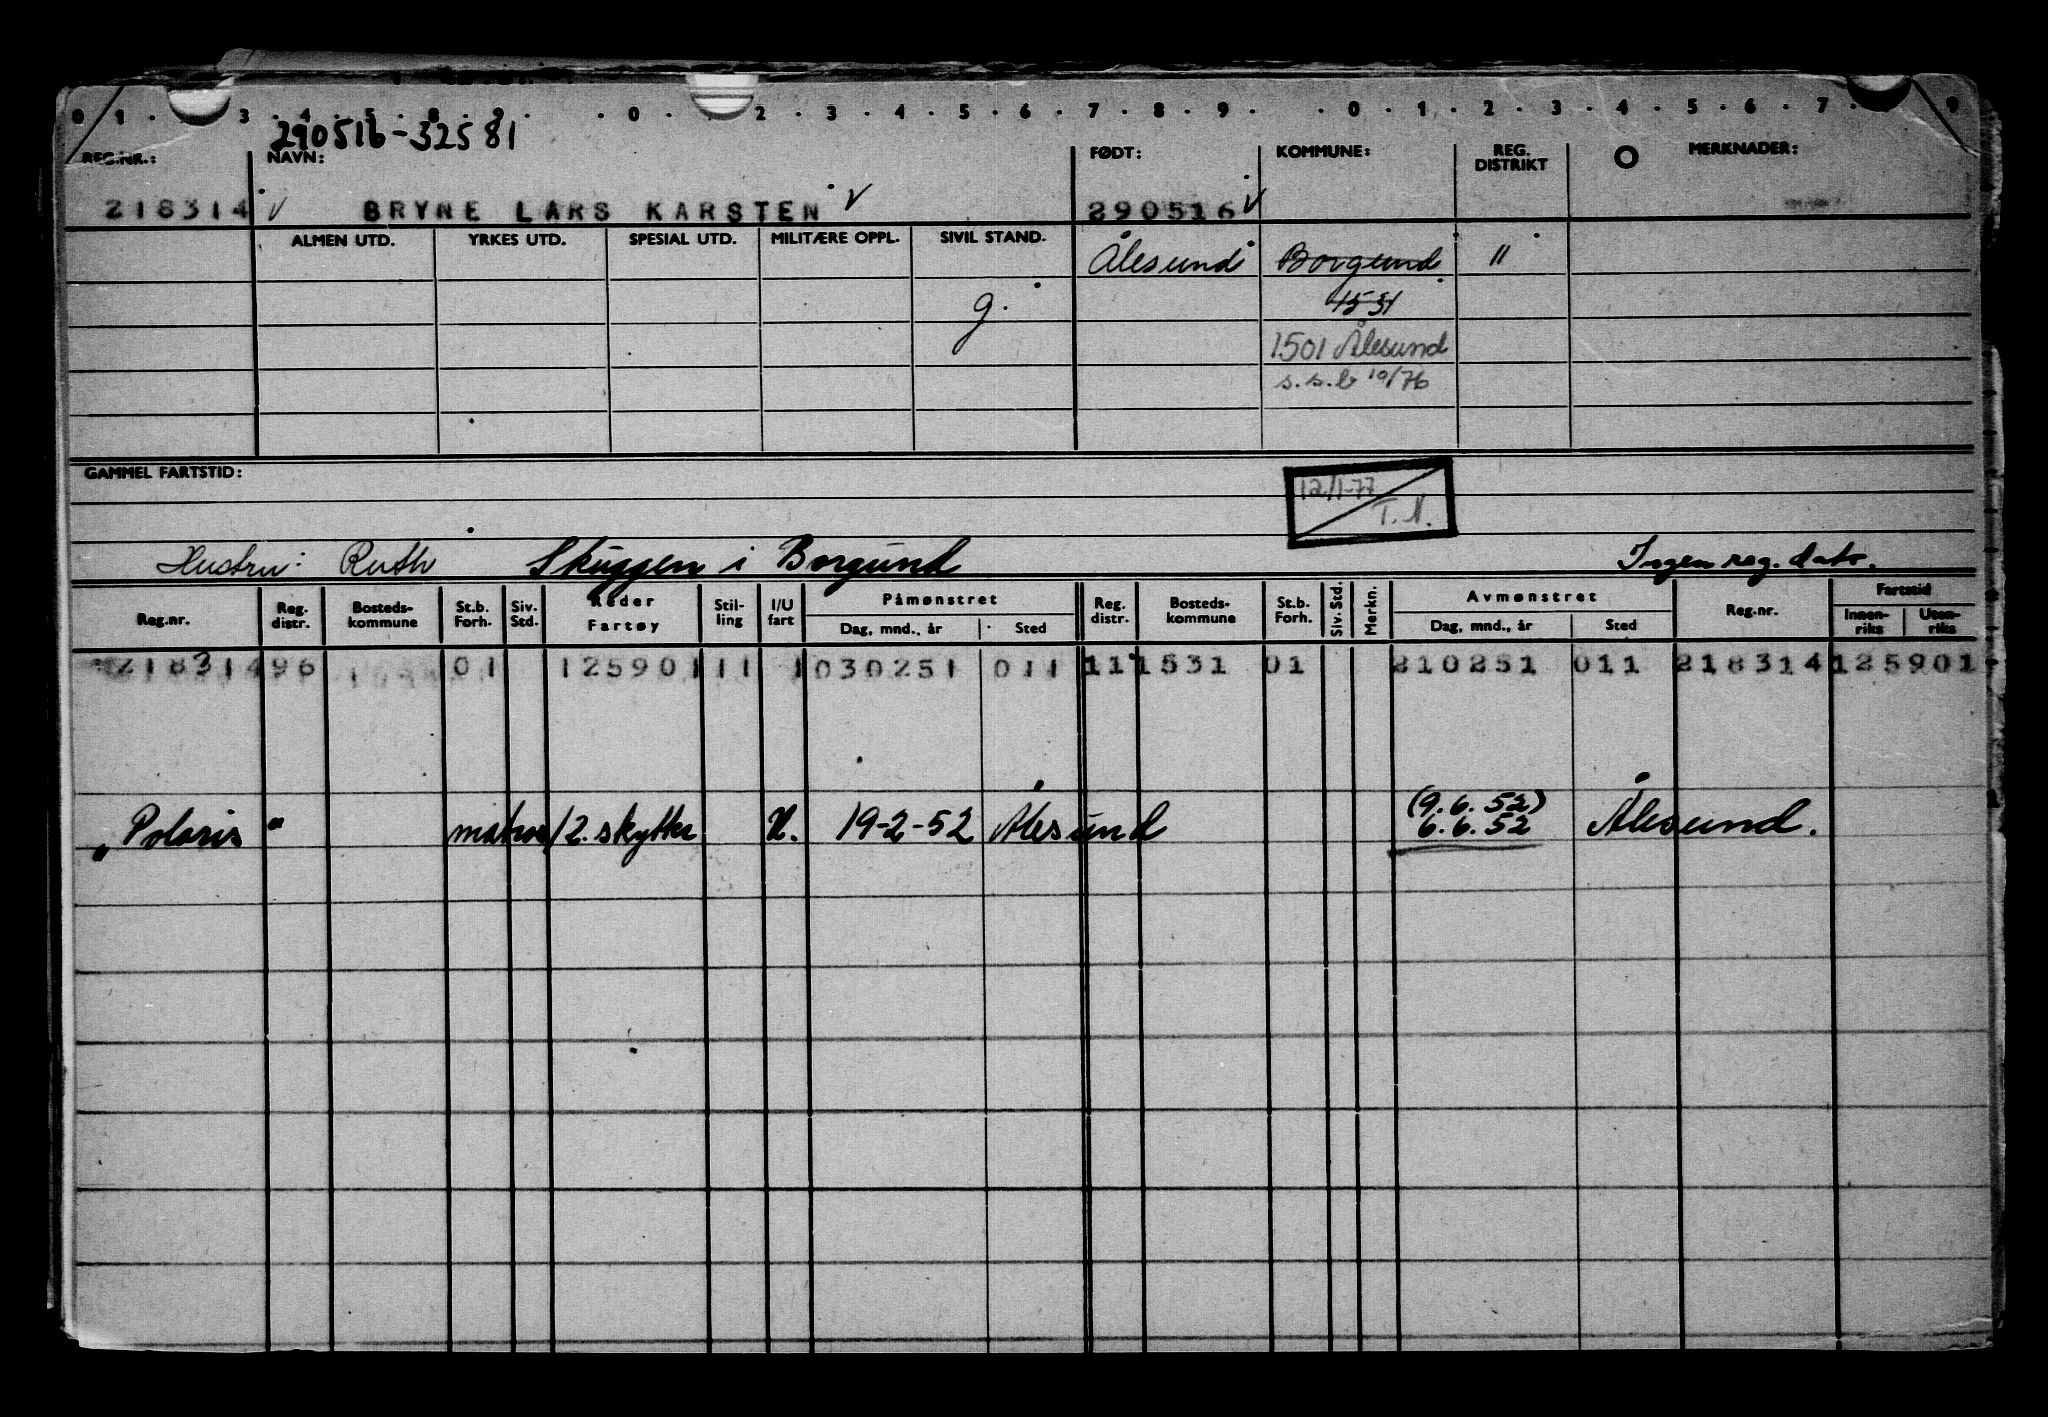 0 1 . 3 4 5 8 9 . . 0 . 2 . 3 . 4 . 5 . 6 . 7 . 8 . 9 . . 0 . 1 . 2 . 3 . 4 . 5 . 6 . 7 . 9
290516-32581
REG.NR.: NAVN: FØDT: KOMMUNE: REG. DISTRIKT MERKNADER:
218314 BRYNE LARS KARSTEN 290516
ALMEN UTD. YRKES UTD. SPESIAL UTD. MILITÆRE OPPL. SIVIL STAND. Ålesund Borgund 11
g. 1531
1501 Ålesund
s.s.b 10/76
GAMMEL FARTSTID:
12/1-77
T.N.
Hustru: Ruth Skuggen i Borgund Ingen reg. dato.
Reg.nr. Reg. distr. Bosteds-kommune St.b. Forh. Siv. Std. Reder Fartøy Stil-ling I/U fart Påmønstret Dag, mnd., år Sted Reg. distr. Bosteds-kommune St.b. Forh. Siv. Std. Merkn. Avmønstret Dag, mnd., år Sted Reg.nr. Fartstid Innen-riks Uten-riks
218314 96 01 125901 11 1 030251 011 11 1531 01 210251 011 218314 125901
(9.6.52)
"Polaris" matros/2. skytter U. 19-2-52 Ålesund 6.6.52 Ålesund.